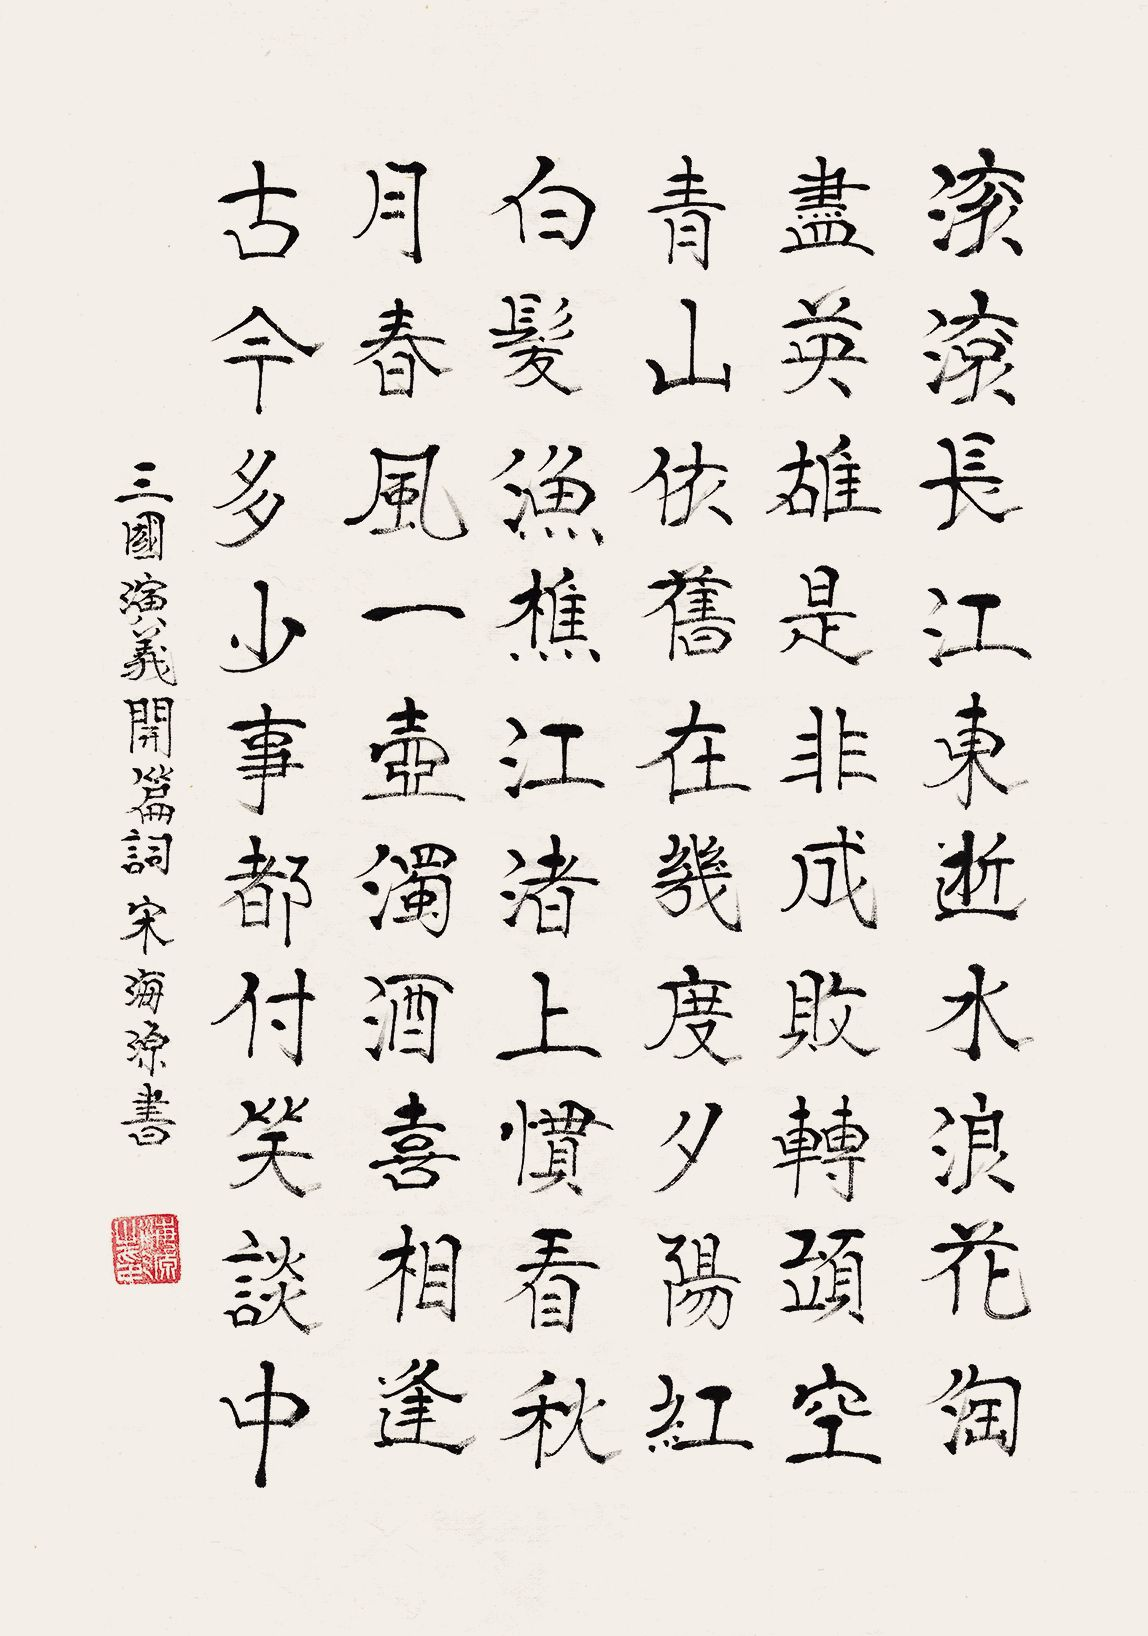 滾滾長江東逝水浪花淘
盡英雄是非成敗轉頭空
青山依舊在幾度夕陽紅
白髮漁樵江渚上慣看秋
月春風一壺濁酒喜相逢
古今多少事都付笑談中
三國演義開篇詞 宋海源書